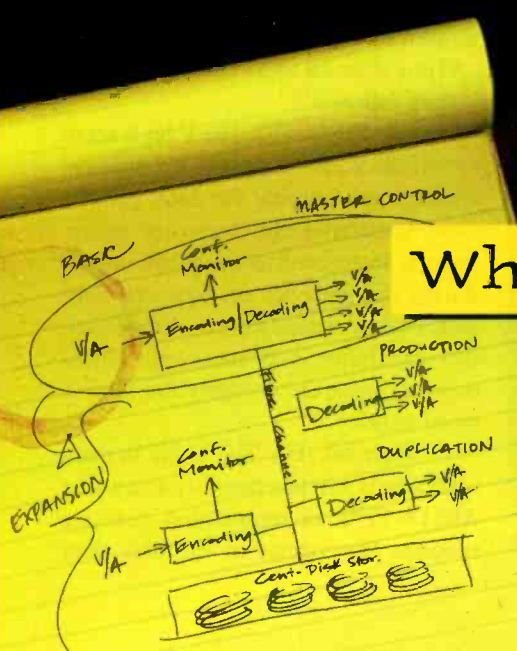 MASTER CONTROL
BASIC
Conf.
Monitor
Wh
V/A
Encoding/Decoding
V/A
V/A
V/A
V/A
PRODUCTION
Fibre Channel
Decoding
V/A
V/A
V/A
EXPANSION
Conf.
Monitor
DUPLICATION
Decoding
V/A
V/A
V/A
Encoding
Cent. Disk Stor.